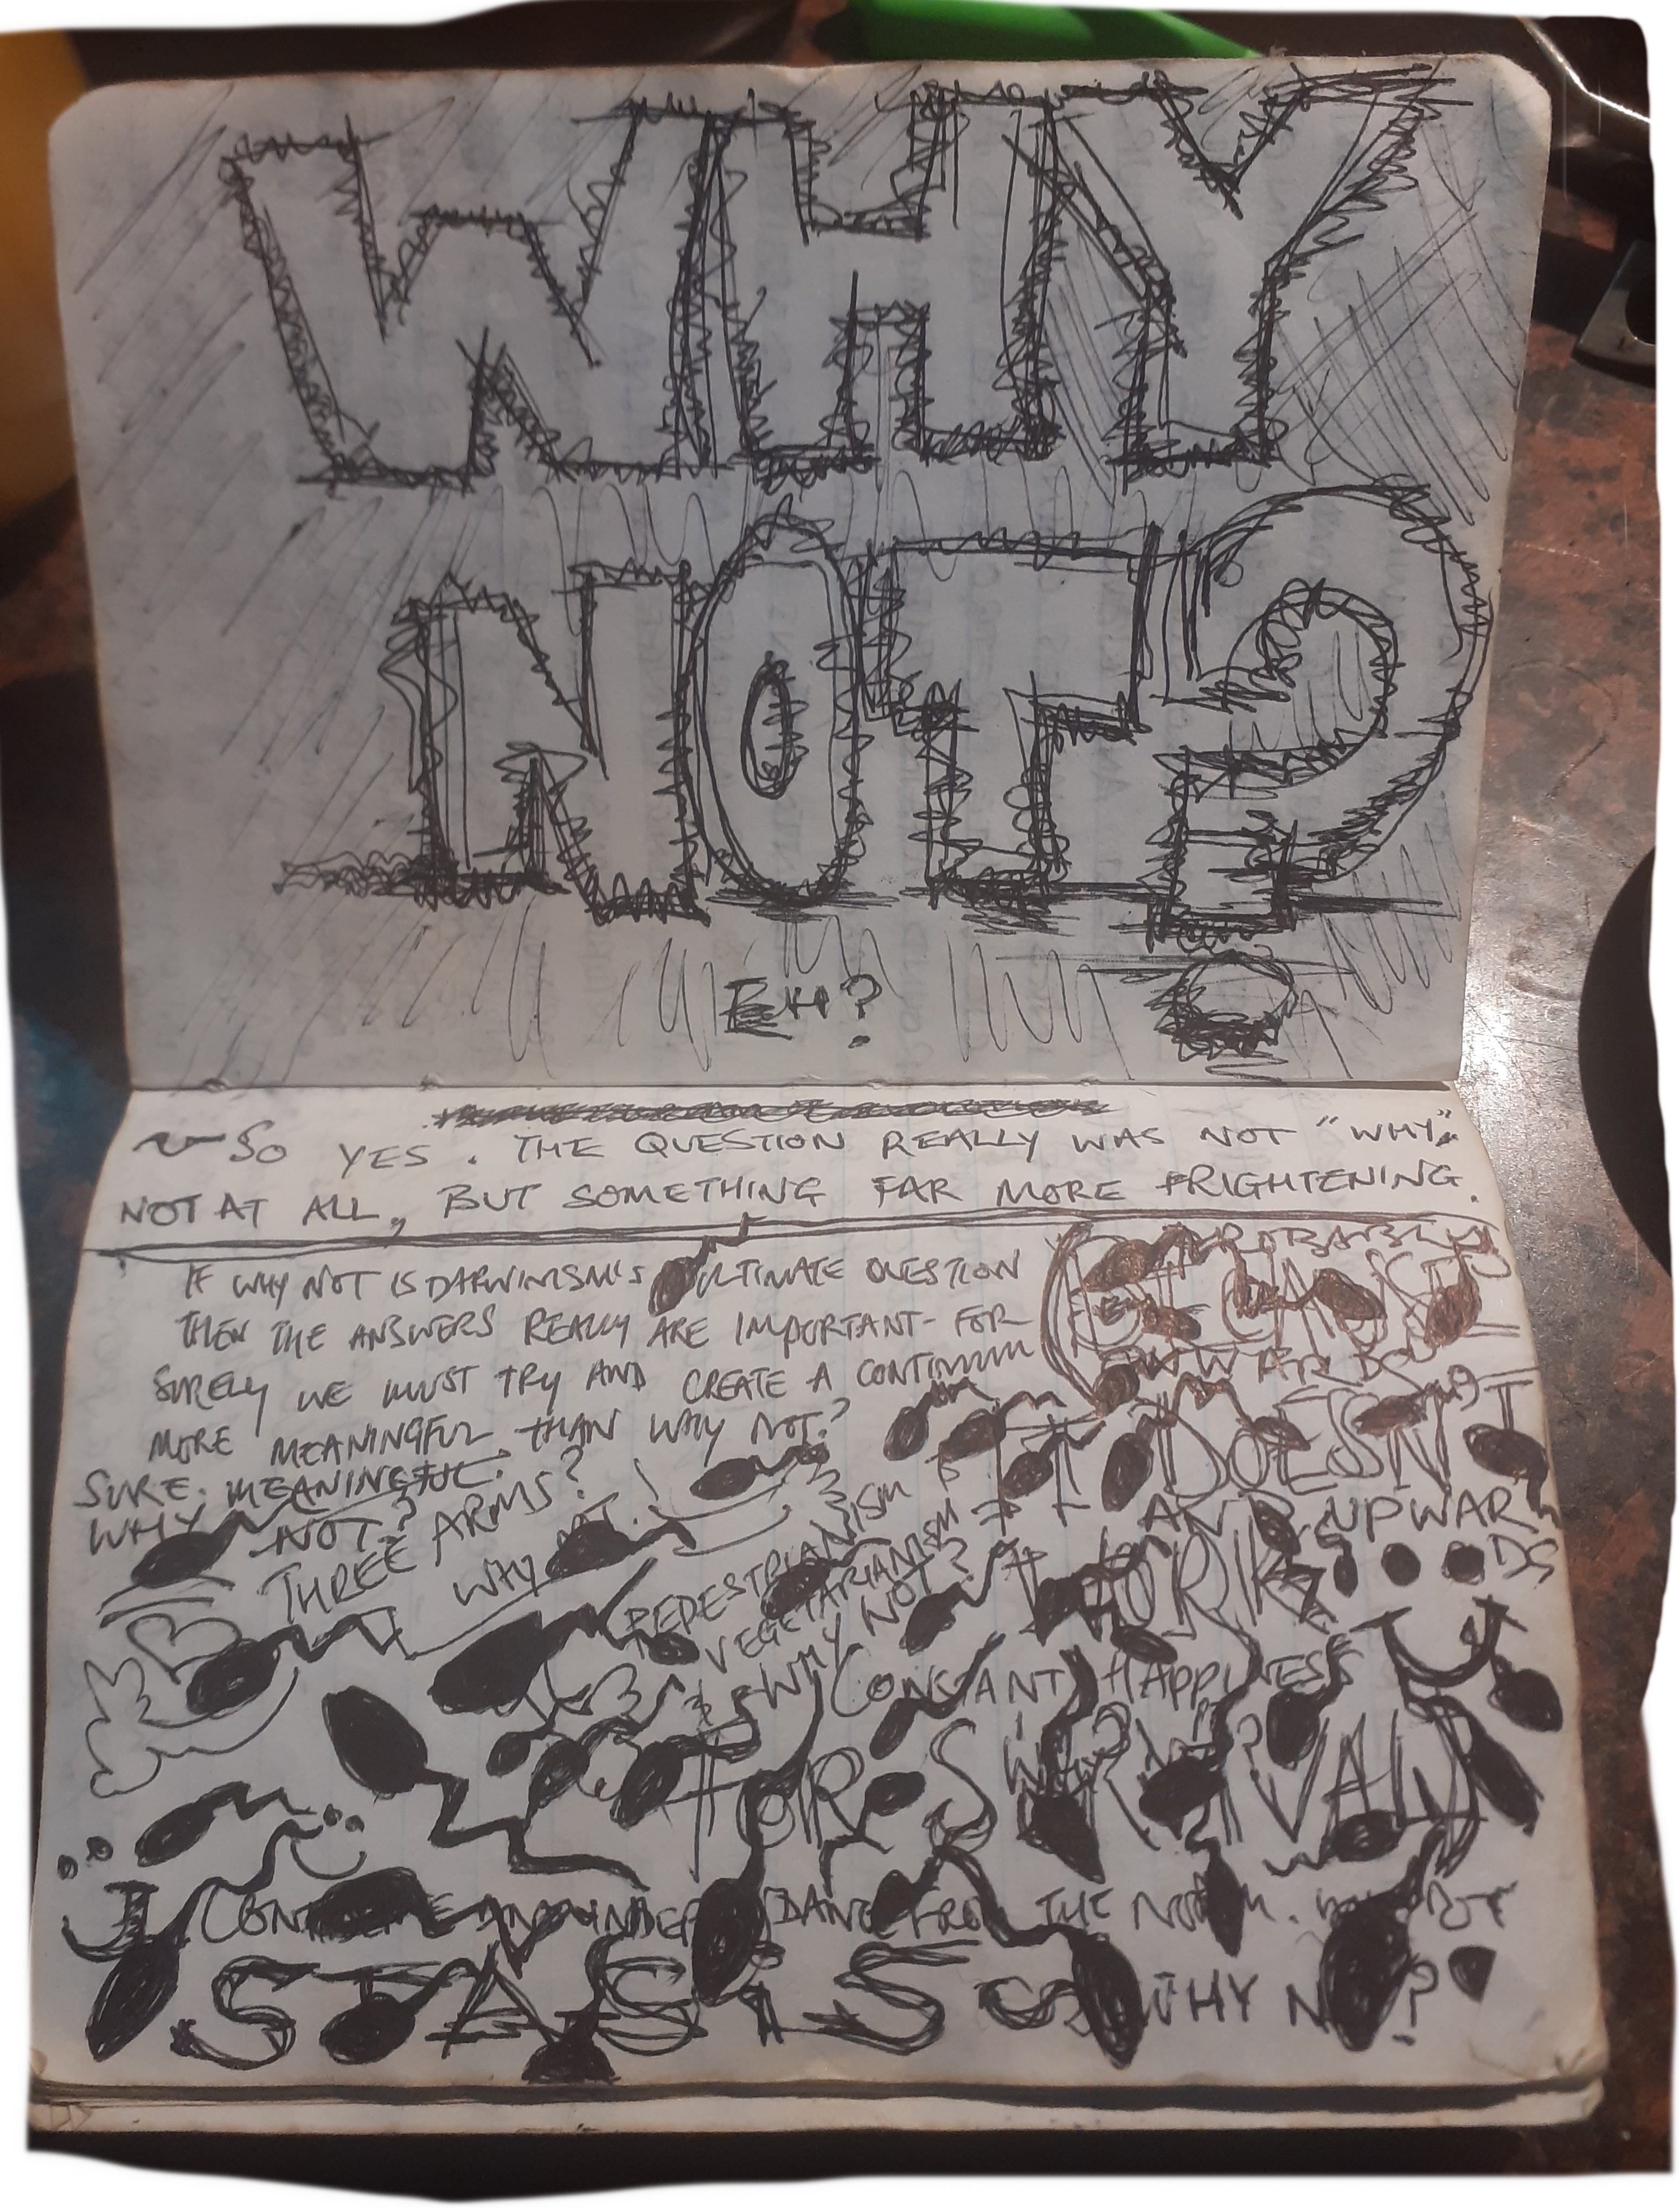 WHY
NOT?
EH?
~ SO YES. THE QUESTION REALLY WAS NOT "WHY"
NOT AT ALL, BUT SOMETHING FAR MORE FRIGHTENING.
IF WHY NOT IS DARWINISM'S ULTIMATE QUESTION
THEN THE ANSWERS REALLY ARE IMPORTANT - FOR
SURELY WE MUST TRY AND CREATE A CONTINUUM
MORE MEANINGFUL THAN WHY NOT?
SURE. MEANINGFUL.
WHY NOT?
THREE ARMS?
WHY NOT!
PEDESTRIANISM?
VEGETARIANISM?
WHY NOT?
PROBABLY
BECAUSE
IT DOESN'T
AND UPWARDS
WORK
CONSTANT HAPPINESS
WHY
FOR SURVIVAL
FROM THE NORM. NOT
STASIS WHY NOT?